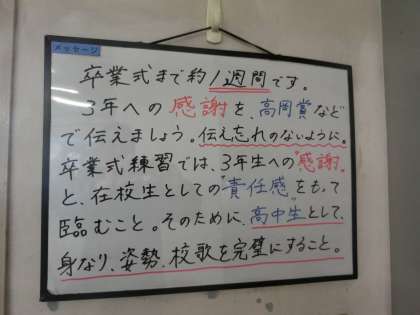 メッセージ
卒業式まで約1週間です。
3年への感謝を、高岡賞など
で伝えましょう。伝え忘れのないように。
卒業式練習では、3年生への"感謝"
と、在校生としての"責任感"をもって
臨むこと。そのために、高中生として、
身なり、姿勢、校歌を完璧にすること。